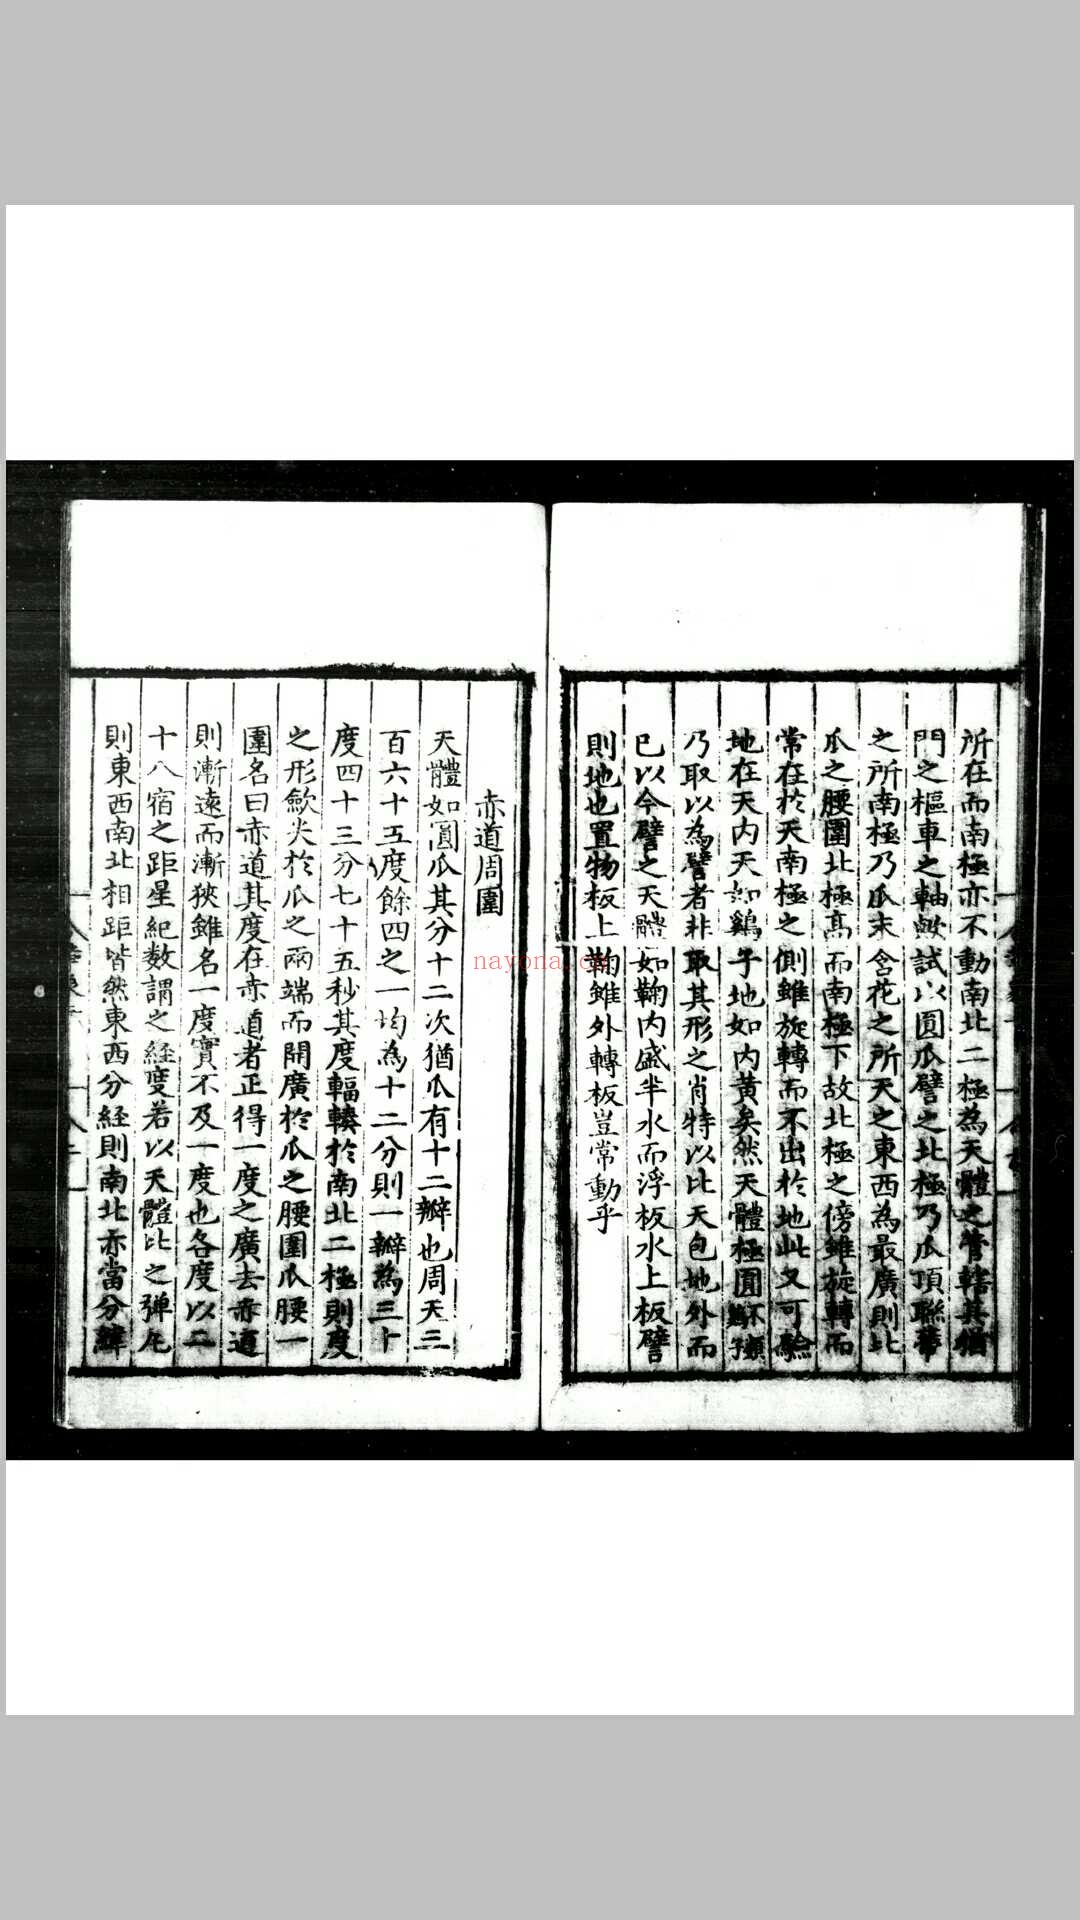 所在而南極亦不動南北二極為天體之管轄其猶
門之樞車之軸歟試以圓瓜譬之北極乃瓜頂聯蔕
之所南極乃瓜末含花之所天之東西為最廣則比
瓜之腰圍北極高而南極下故北極之傍雖旋轉而
常在於天南極之側雖旋轉而不出於地此又可驗
地在天內天如鷄子地如內黃矣然天體極圓不類鷄子
乃取以為譬者非取其形之肖特以比天包地外而
已以今譬之天體如鞠內盛半水而浮板水上板譬
則地也置物板上鞠雖外轉板豈常動乎
赤道周圍
天體如圓瓜其分十二次猶瓜有十二瓣也周天三
百六十五度餘四之一均為十二分則一瓣為三十
度四十三分七十五秒其度輻輳於南北二極則度
之形歛尖於瓜之兩端而開廣於瓜之腰圍瓜腰一
圍名曰赤道其度在赤道者正得一度之廣去赤道
則漸遠而漸狹雖名一度實不及一度也各度以二
十八宿之距星紀數謂之経度若以天體比之彈丸
則東西南北相距皆然東西分経則南北亦當分緯
nayona.cn